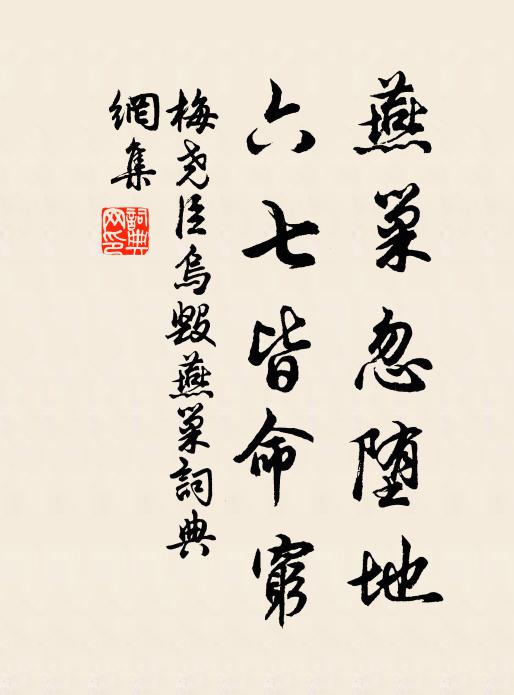 燕巢忽堕地
六七皆命窮
梅尧臣烏毀燕巢詞典
網集
詞典
网印